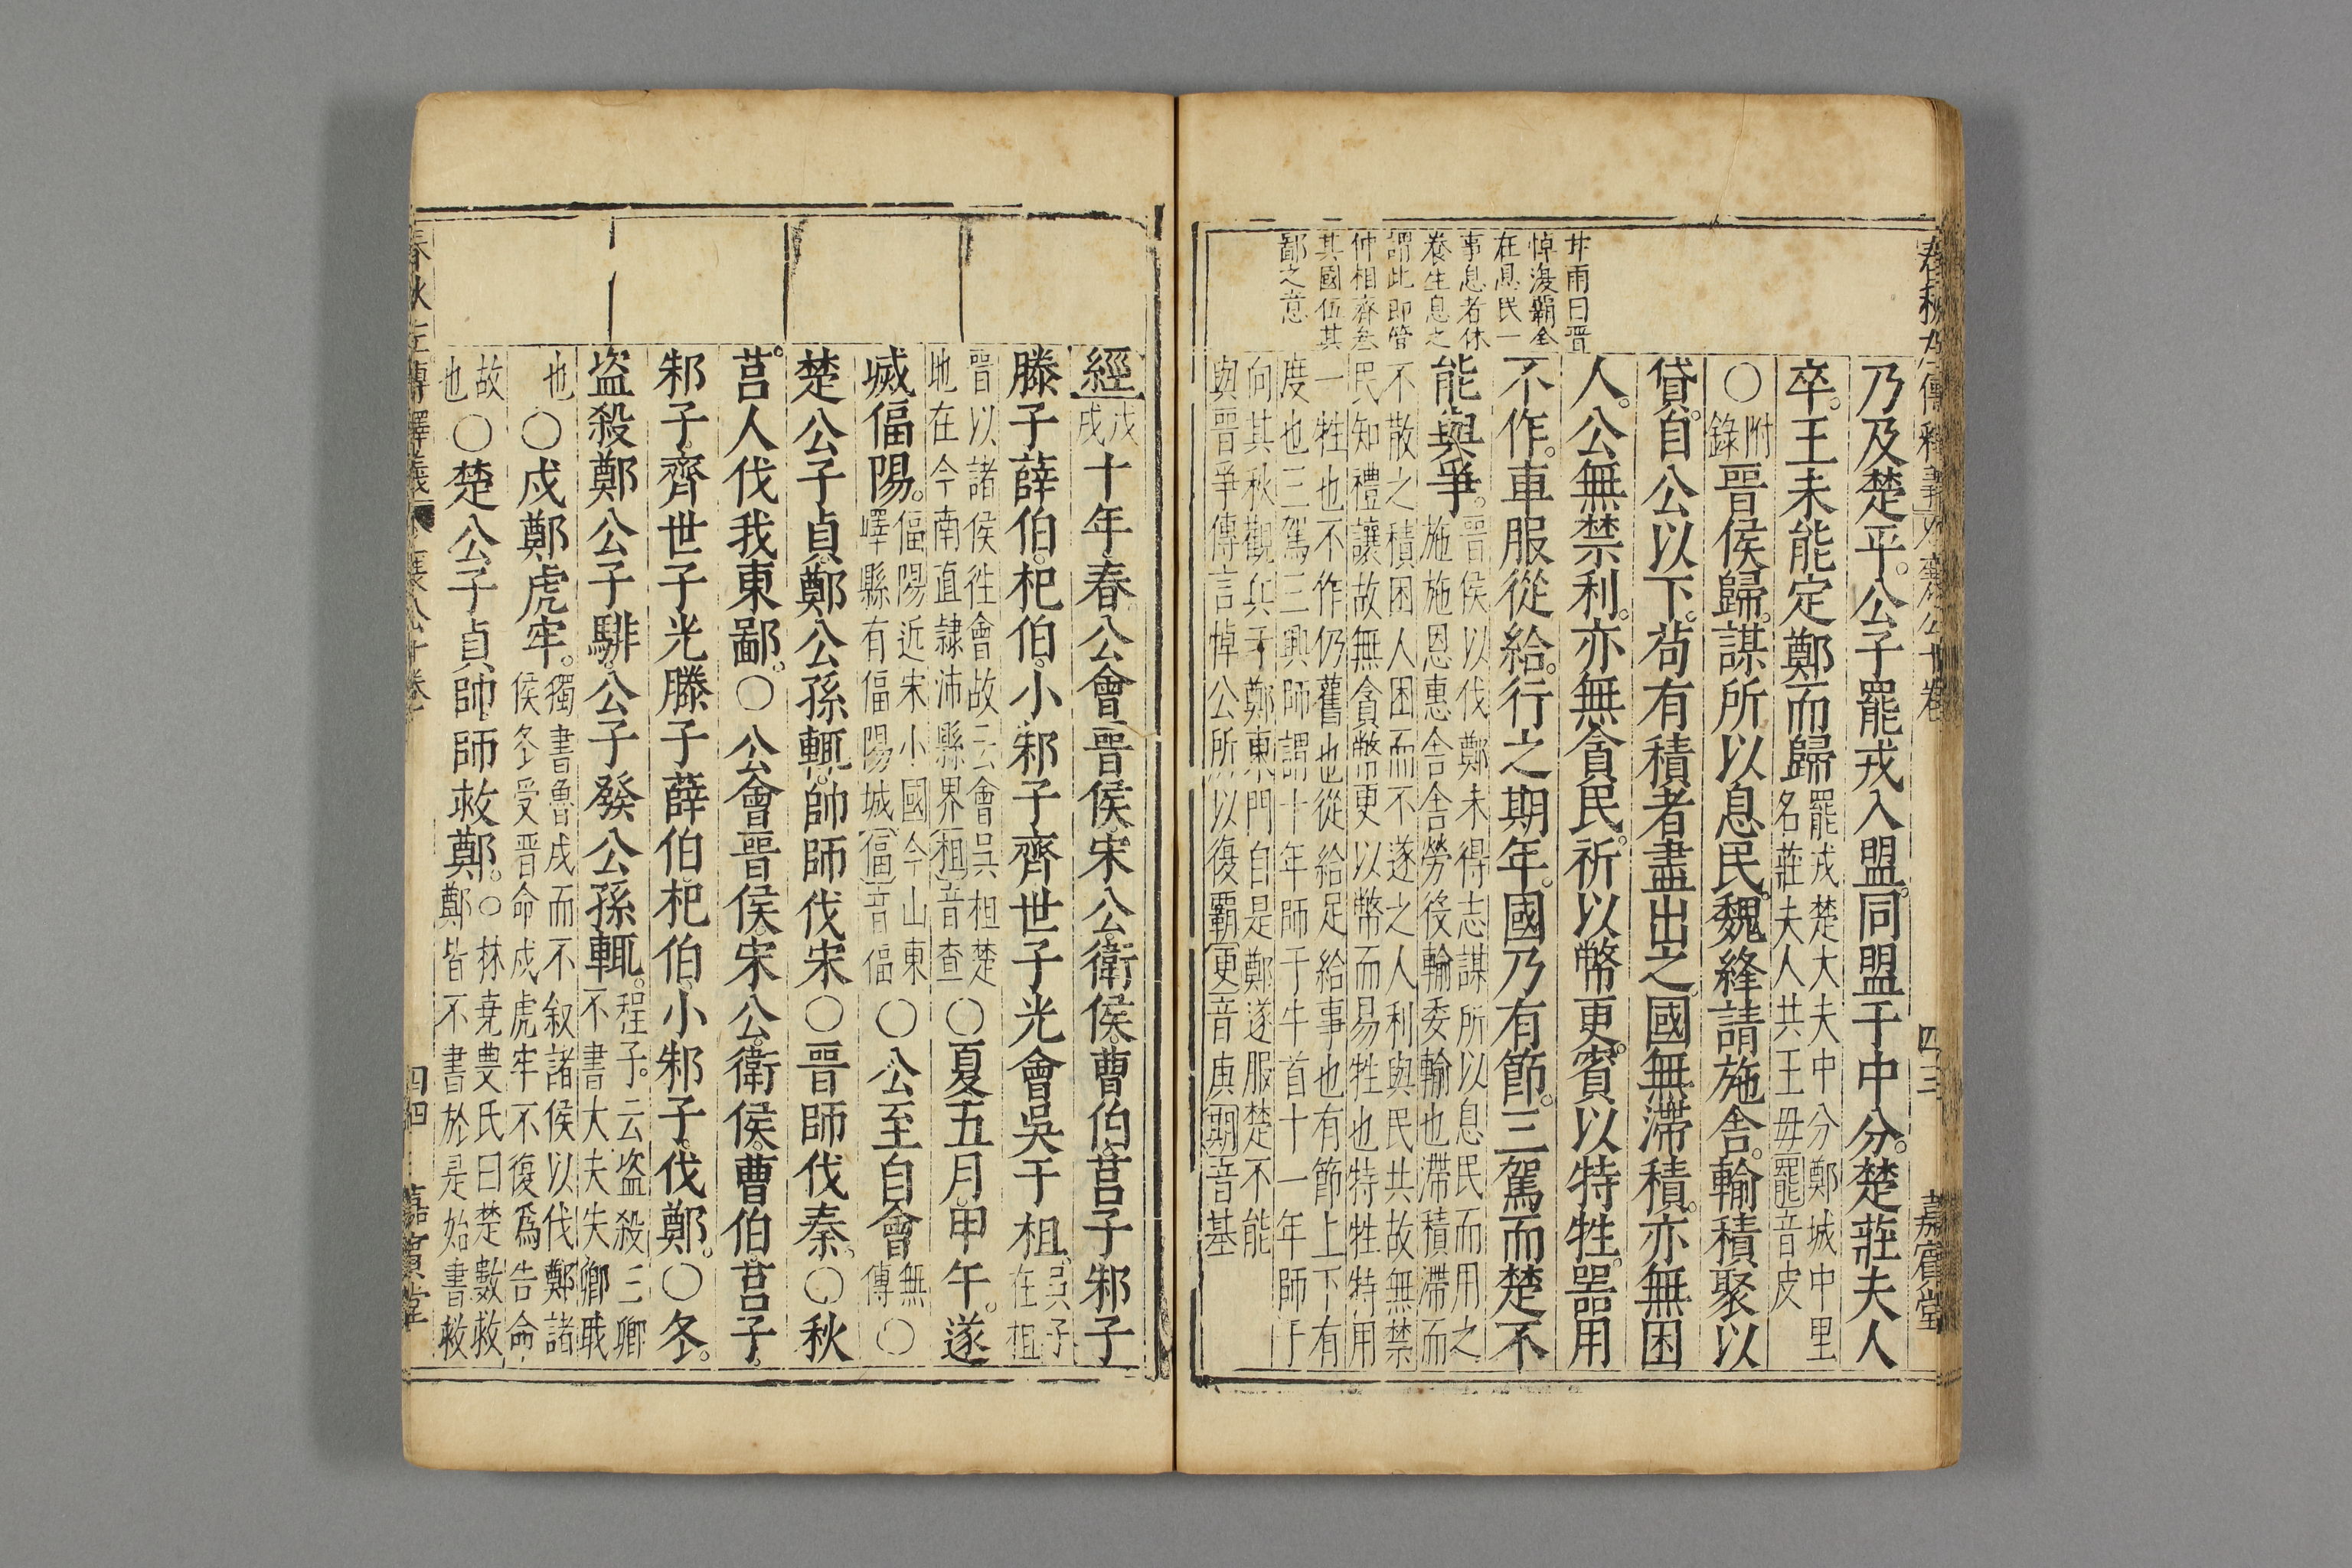 乃及楚平。公子罷戎入盟。同盟于中分。楚莊夫人
卒。王未能定鄭而歸罷戎楚大夫中分鄭城中里名莊夫人共王毋罷音皮
〇附錄晉侯歸。謀所以息民。魏絳請施舍。輸積聚以
貸。自公以下。苟有積者盡出之。國無滯積。亦無困
人。公無禁利。亦無貪民。祈以幣更。賓以特牲。器用
不作。車服從給。行之期年。國乃有節。三駕而楚不
能與爭。晉侯以伐鄭未得志謀所以息民而用之施施恩惠舍舍勞役輸委輸也滯積滯而
不散之積困人困而不遂之人利與民共故無禁民知禮讓故無貪幣更以幣而易牲也特牲特用
一牲也不作仍舊也從給足給事也有節上下有度也三駕三興師謂十年師于牛首十一年師于
向其秋觀兵于鄭東門自是鄭遂服楚不能與晉爭傳言悼公所以復霸更音庚期音基
廾雨曰晉
悼復霸全
在息民一
事息者休
養生息之
謂此即管
仲相齊叁
其國伍其
鄙之意
四三
嘉賓堂
經戊戌十年春公會晉侯宋公衛侯曹伯莒子邾子
滕子薛伯杞伯小邾子齊世子光會吳于柤。吳子在柤
晉以諸侯徃會故云會吳柤楚地在今南直隸沛縣界柤音查〇夏五月甲午。遂
滅偪陽。偪陽近宋小國今山東嶧縣有偪陽城偪音偪〇公至自會無傳〇
楚公子貞鄭公孫輒帥師伐宋〇晉師伐秦。〇秋
莒人伐我東鄙。〇公會晉侯宋公衛侯曹伯莒子。
邾子齊世子光滕子薛伯杞伯小邾子伐鄭。〇冬。
盜殺鄭公子騑公子發公孫輒。程子云盜殺三卿不書大夫失卿職
也〇戍鄭虎牢。獨書魯戍而不叙諸侯以伐鄭諸侯冬受晉命戍虎牢不復爲告命
故也〇楚公子貞帥師救鄭。〇林堯叟氏曰楚數救鄭皆不書於是始書救
四四
嘉賓堂